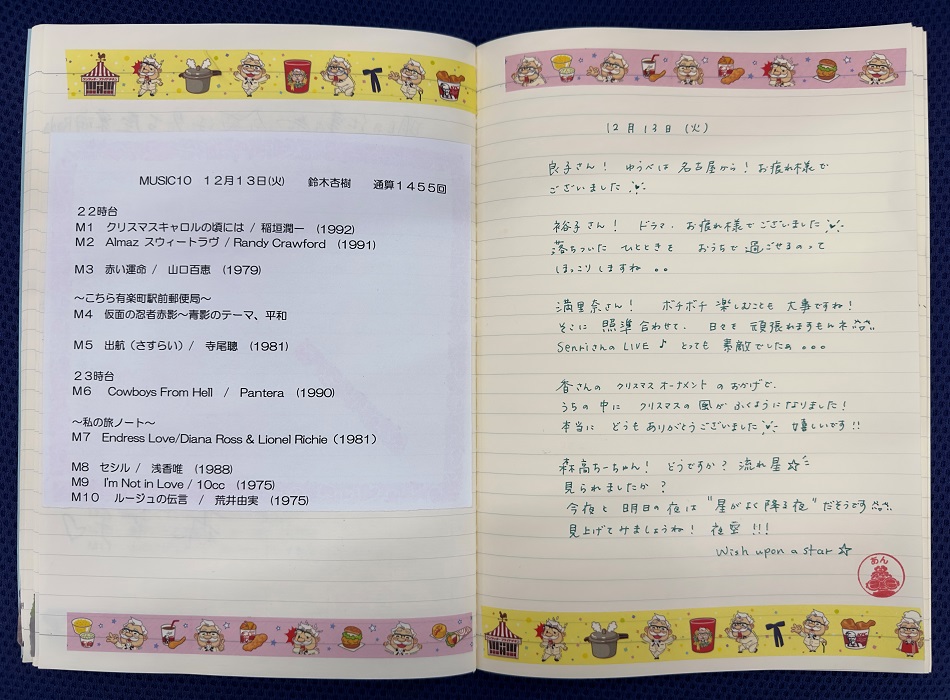 MUSIC10 12月13日(火) 鈴木杏樹 通算1455回
22時台
M1 クリスマスキャロルの頃には / 稲垣潤一 (1992)
M2 Almaz スウィートラヴ / Randy Crawford (1991)
M3 赤い運命 / 山口百恵 (1979)
～こちら有楽町駅前郵便局～
M4 仮面の忍者赤影～青影のテーマ、平和
M5 出航(さすらい) / 寺尾聰 (1981)
23時台
M6 Cowboys From Hell / Pantera (1990)
～私の旅ノート～
M7 Endress Love/Diana Ross & Lionel Richie (1981)
M8 セシル / 浅香唯 (1988)
M9 I'm Not in Love / 10cc (1975)
M10 ルージュの伝言 / 荒井由実 (1975)
12月13日(火)
良子さん! ゆうべは 名古屋から! お疲れ様で
ございました
裕子さん! ドラマ、お疲れ様でございました
落ちついた ひとときを おうちで 過ごせるのって
ほっこりしますね 。。
満里奈さん! ボチボチ 楽しむことも 大事ですね!
そこに 照準 合わせて、日々を 頑張れますもんネ
SenriさんのLIVE ♪ とっても 素敵でしたぁ 。。。
香さんの クリスマス オーナメント のおかげで、
うちの中に クリスマスの 風が ふくようになりました!
本当に どうもありがとうございました 嬉しいです!!
森高ちーちゃん! どうですか? 流れ星☆彡
見られましたか?
今夜と 明日の夜は "星がよく降る夜" だそうです
見上げてみましょうね! 夜空 !!!
Wish upon a star ☆
あん